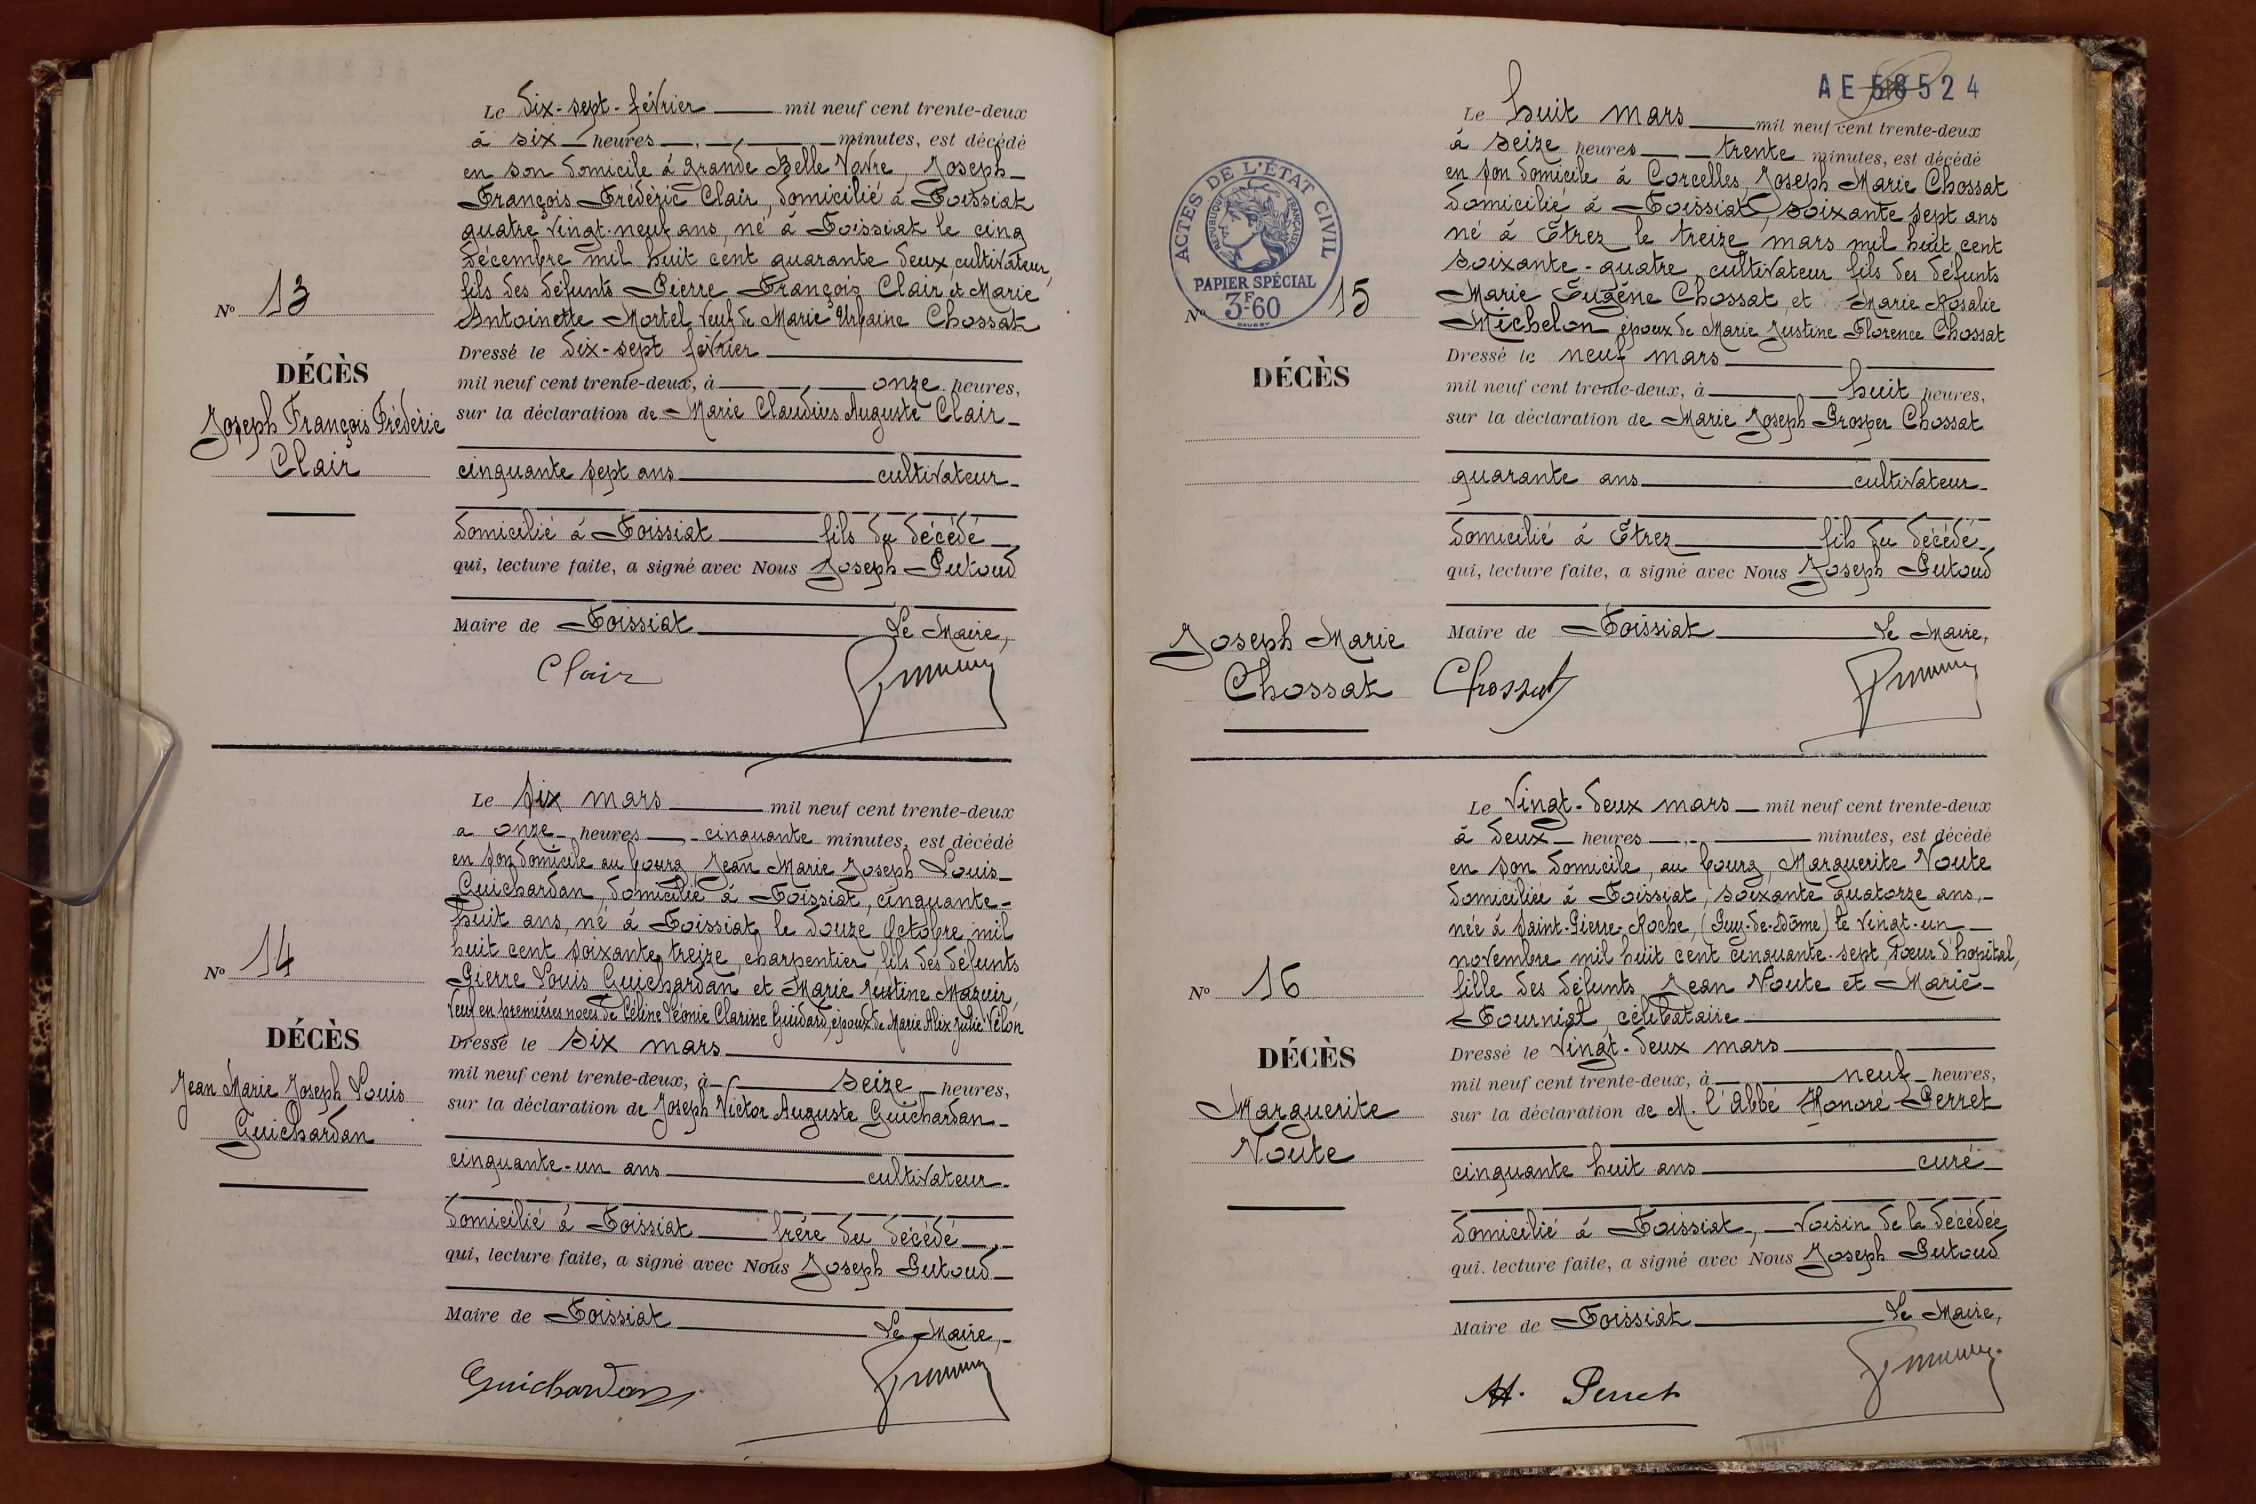 Le dix-sept-février mil neuf cent trente-deux
à six heures minutes, est décédé
en son domicile à Grande Belle Vavre, Joseph
François Frédéric Clair, domicilié à Foissiat
quatre vingt-neuf ans, né à Foissiat le cinq
décembre mil huit cent quarante deux, cultivateur,
fils des défunts Pierre François Clair et Marie
Antoinette Mortel veuf de Marie Urbaine Chossat
Dressé le dix-sept février
mil neuf cent trente-deux, à onze heures,
sur la déclaration de Marie Claudius Auguste Clair
cinquante sept ans cultivateur
domicilié à Foissiat fils du décédé
qui, lecture faite, a signé avec Nous Joseph Putoud
Maire de Foissiat Le Maire,
Clair
No 13
DÉCÈS
Joseph François Frédéric
Clair
Le six mars mil neuf cent trente-deux
a onze heures cinquante minutes, est décédé
en son domicile au bourg, Jean Marie Joseph Louis
Guichardan, domicilié à Foissiat, cinquante-
huit ans, né à Foissiat le douze Octobre mil
huit cent soixante treize, charpentier, fils des défunts
Pierre Louis Guichardan et Marie Justine Mazuir,
Veuf en premières noces de Céline Léonie Clarisse Guidard, époux de Marie Alix Julie Vélon
Dressé le six mars
mil neuf cent trente-deux, à seize heures,
sur la déclaration de Joseph Victor Auguste Guichardan
cinquante-un ans cultivateur
domicilié à Foissiat frère du décédé
qui, lecture faite, a signé avec Nous Joseph Putoud
Maire de Foissiat Le Maire,
Guichardan
No 14
DÉCÈS
Jean Marie Joseph Louis
Guichardan
AE 58524
ACTES DE L'ÉTAT CIVIL
RÉPUBLIQUE FRANÇAISE
PAPIER SPÉCIAL
3F60
Le huit mars mil neuf cent trente-deux
à seize heures trente minutes, est décédé
en son domicile à Corcelles, Joseph Marie Chossat
domicilié à Foissiat, soixante sept ans
né à Étrez le treize mars mil huit cent
soixante-quatre, cultivateur fils des défunts
Marie Eugène Chossat, et Marie Rosalie
Michelon époux de Marie Justine Florence Chossat
Dressé le neuf mars
mil neuf cent trente-deux, à huit heures,
sur la déclaration de Marie Joseph Prosper Chossat
quarante ans cultivateur
domicilié à Étrez fils du décédé
qui, lecture faite, a signé avec Nous Joseph Putoud
Maire de Foissiat Le Maire,
Chossat
No 15
DÉCÈS
Joseph Marie
Chossat
Le vingt-deux mars mil neuf cent trente-deux
à deux heures minutes, est décédé
en son domicile, au bourg, Marguerite Voute
domiciliée à Foissiat, soixante quatorze ans,
née à Saint-Pierre-Roche, (Puy-de-Dôme) le vingt-un
novembre mil huit cent cinquante-sept, sœur d'hôpital,
fille des défunts Jean Voute et Marie
Fourniat, célibataire
Dressé le vingt-deux mars
mil neuf cent trente-deux, à neuf heures,
sur la déclaration de M. l'abbé Honoré Perret
cinquante huit ans curé
domicilié à Foissiat, voisin de la décédée
qui, lecture faite, a signé avec Nous Joseph Putoud
Maire de Foissiat Le Maire,
H. Perret
No 16
DÉCÈS
Marguerite
Voute